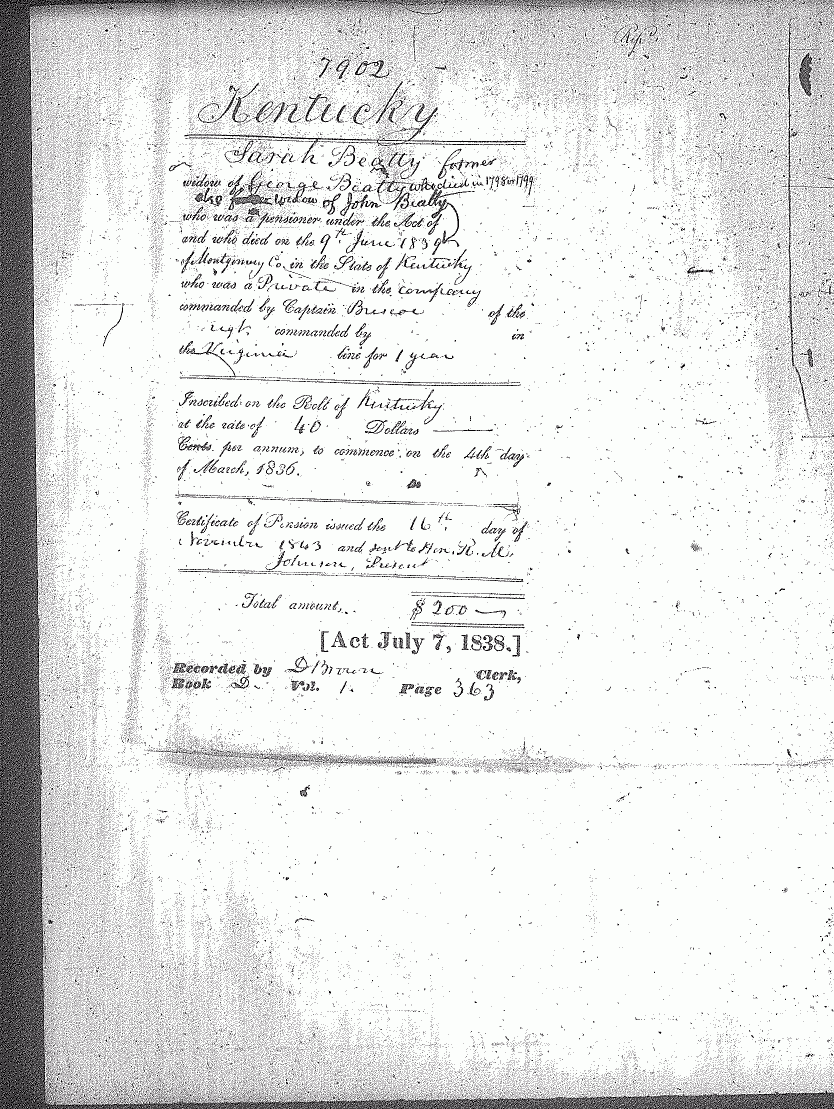 7902
Kentucky
Sarah Beatty former
widow of George Beatty who died in 1798 or 1799
also widow of John Beatty
who was a pensioner under the Act of
and who died on the 9th June 1839
of Montgomery Co. in the State of Kentucky
who was a Private in the company
commanded by Captain Briscoe of the
regt. commanded by in
the Virginia line for 1 year
Inscribed on the Roll of Kentucky
at the rate of 40 Dollars
Cents per annum, to commence on the 4th day
of March, 1836.
Certificate of Pension issued the 16th day of
November 1843 and sent to Hon. R. M.
Johnson, Present
Total amount, $ 200
[Act July 7, 1838.]
Recorded by D Brown Clerk,
Book D. Vol. 1. Page 363